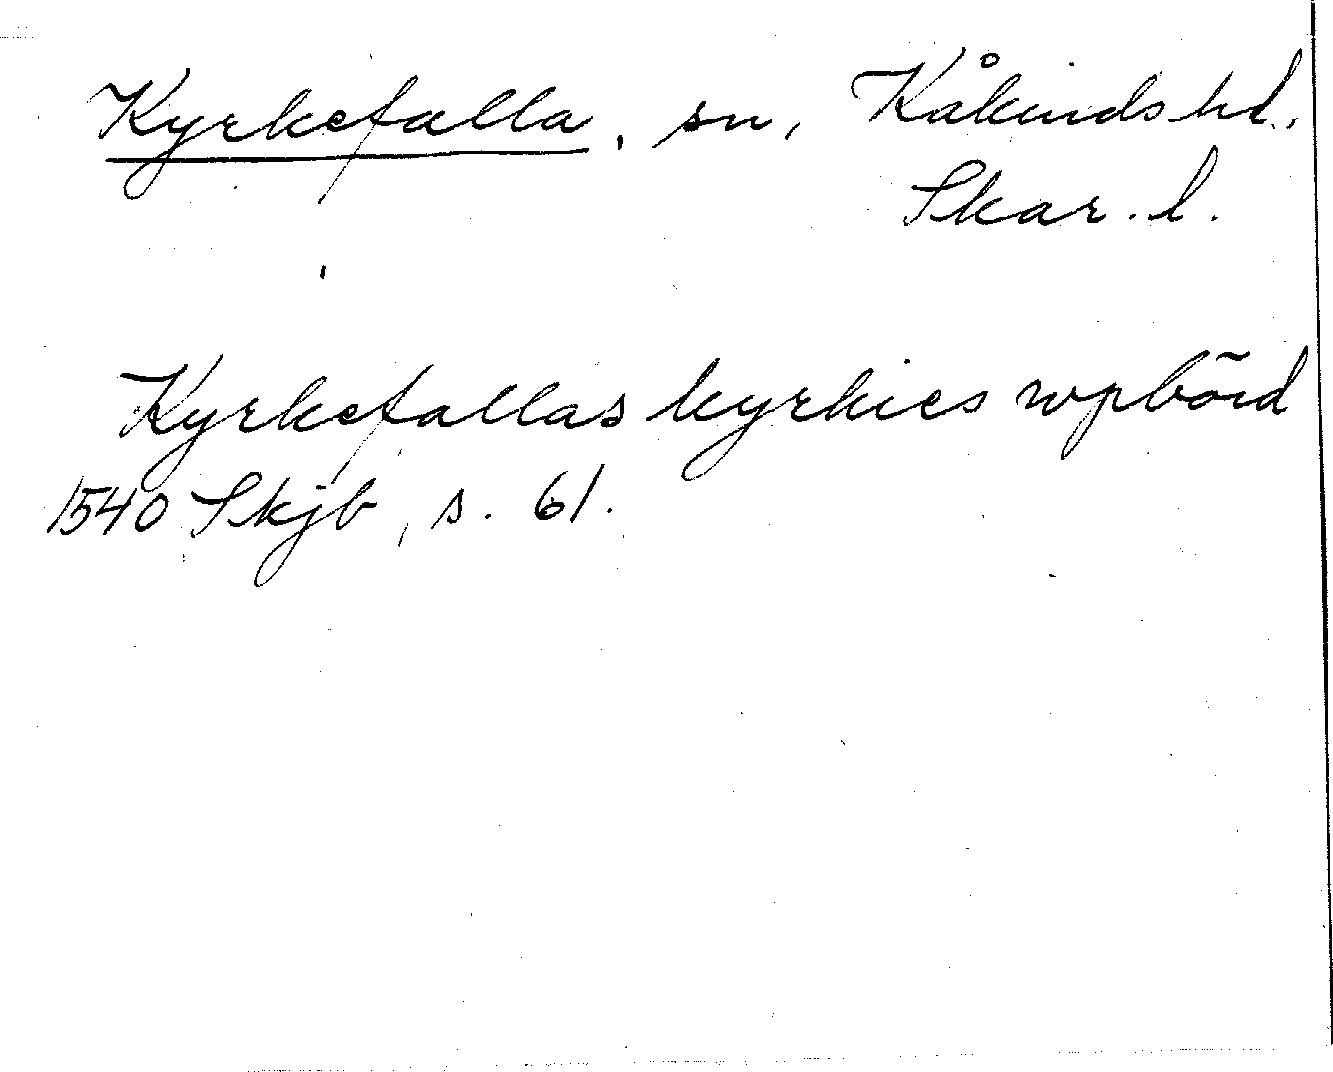 Kyrkefalla, sn, Kåkinds hd.,
Skar. l.
Kyrkefallas kyrkies wpbörd
1540 Skjb, s. 61.